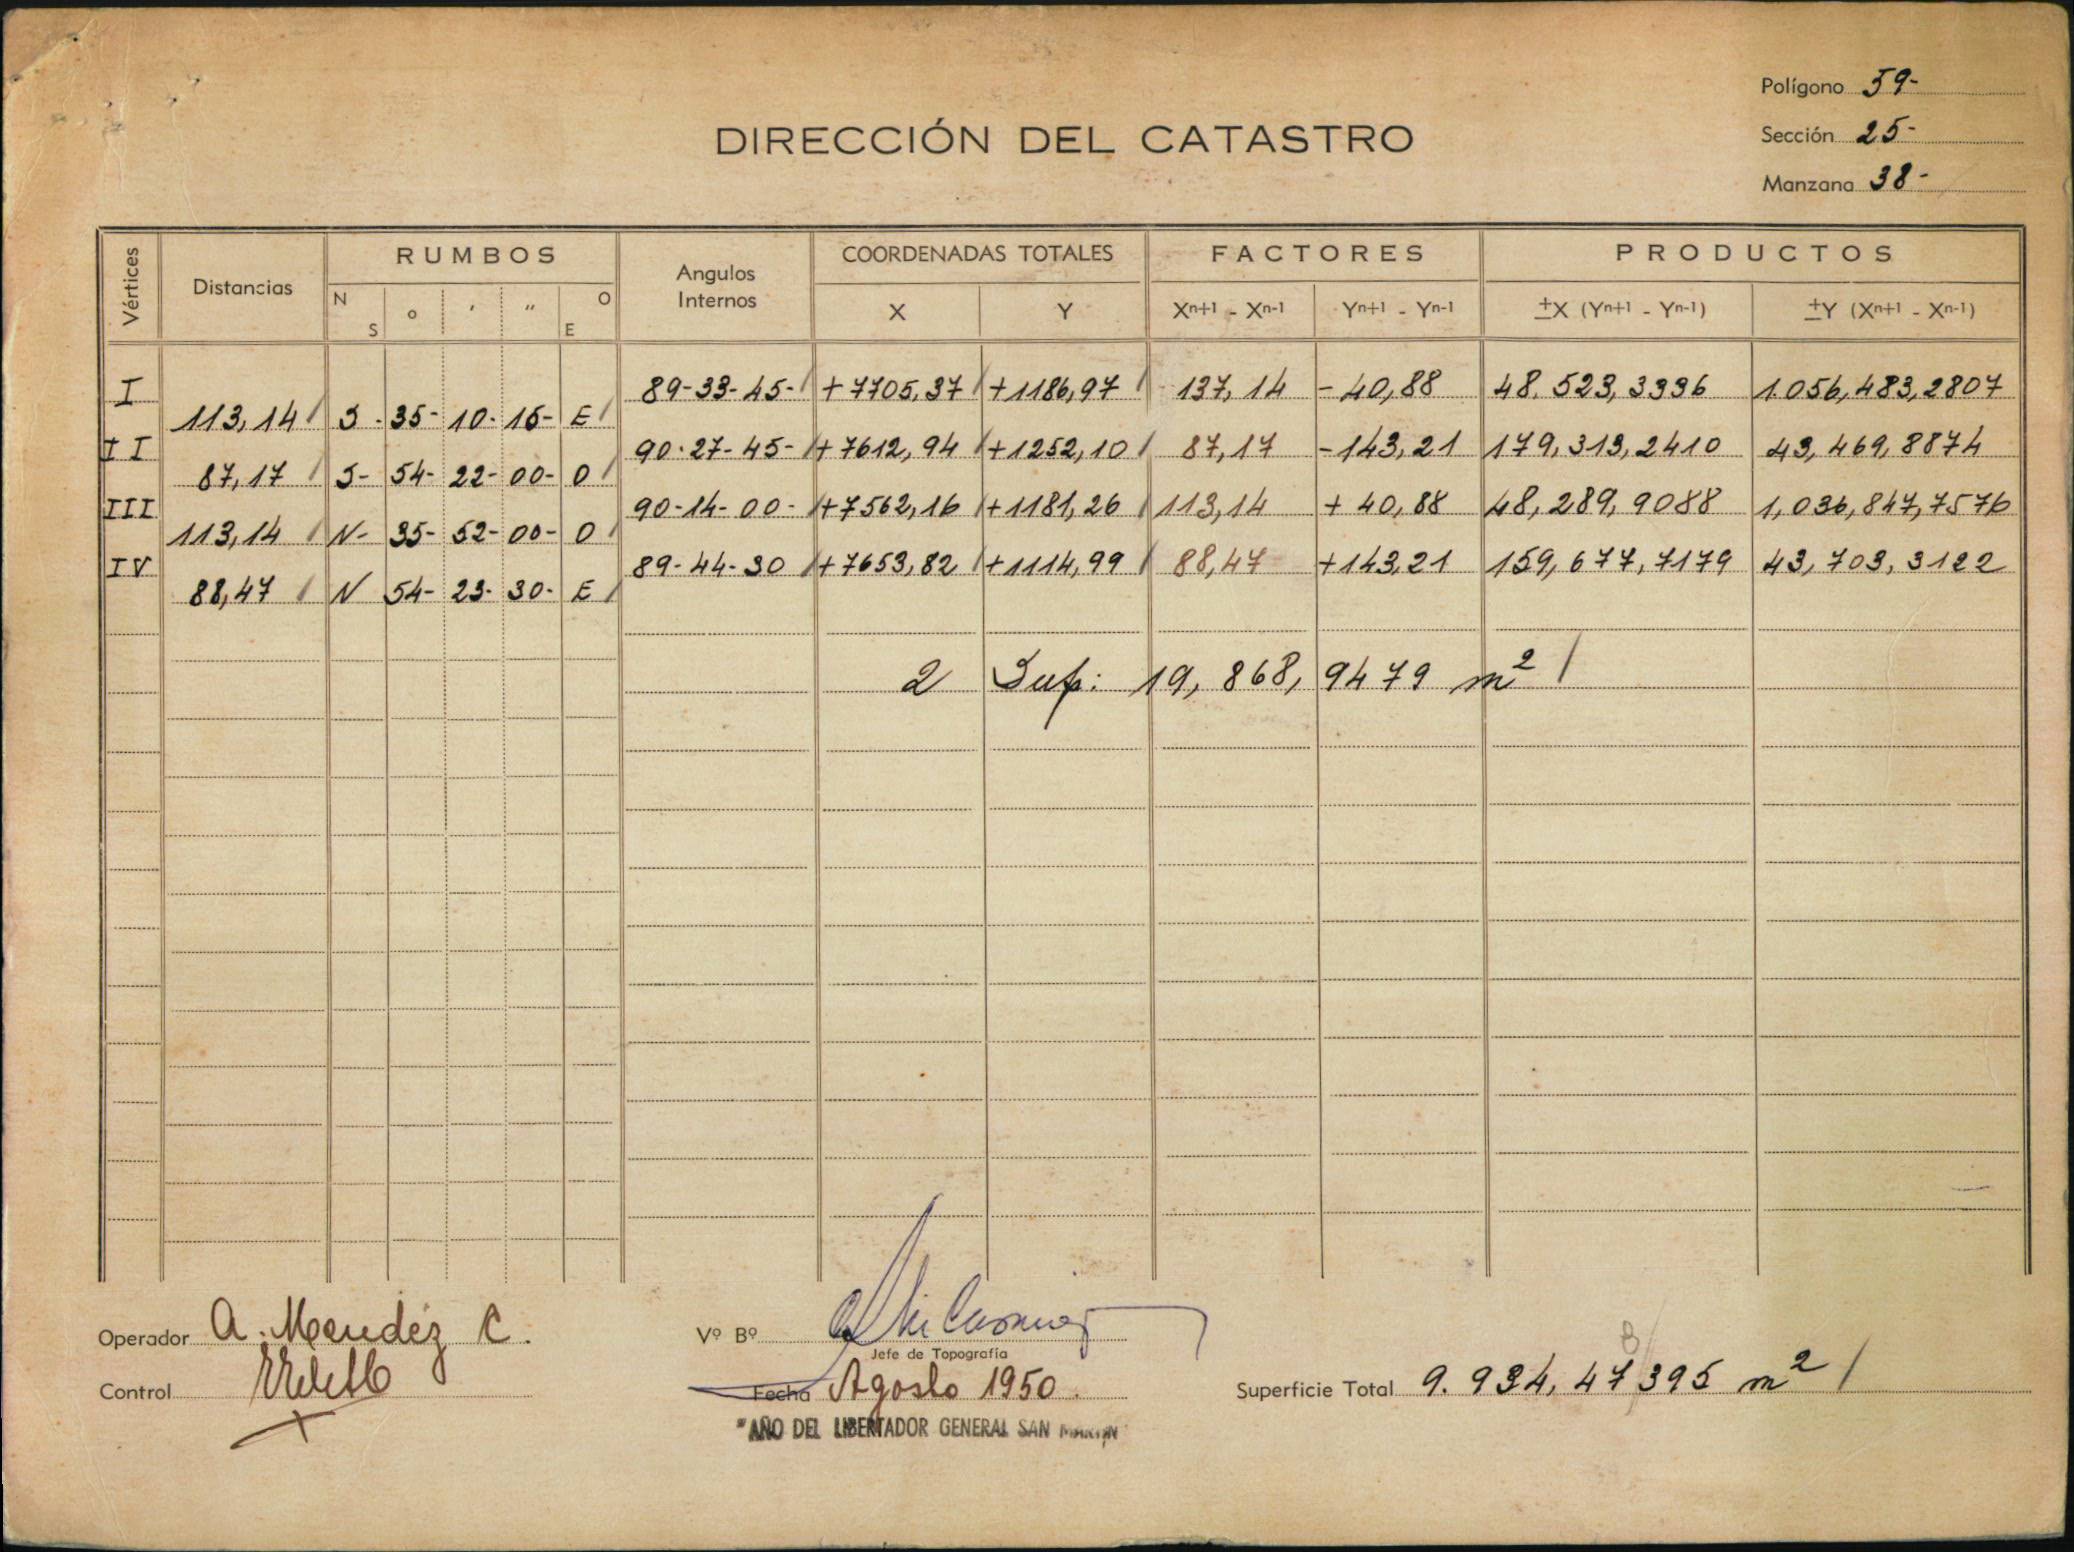 Polígono 59-
DIRECCIÓN DEL CATASTRO
Sección 25-
Manzana 38-
Vértices Distancias RUMBOS Angulos Internos COORDENADAS TOTALES FACTORES PRODUCTOS
N S o ' " O E X Y Xn+1 - Xn-1 Yn+1 - Yn-1 ±X (Yn+1 - Yn-1) ±Y (Xn+1 - Xn-1)
I 89-33-45- +7705,37 +1186,97 137,14 -40,88 48.523,3336 1.056,483,2807
113,14 S- 35- 10- 15- E
II 90-27-45- +7612,94 +1252,10 87,17 -143,21 179,313,2410 43,469,8874
87,17 S- 54- 22- 00- O
III 90-14-00- +7562,16 +1181,26 113,14 +40,88 48,289,9088 1,036,847,7576
113,14 N- 35- 52- 00- O
IV 89-44-30 +7653,82 +1114,99 88,47 +143,21 159,677,7179 43,703,3122
88,47 N 54- 23- 30- E
2 Sup: 19,868,9479 m²
Operador A. Mendéz C. Vº Bº
Jefe de Topografía
Control Fecha Agosto 1950. Superficie Total 9.934,47395 m²
"AÑO DEL LIBERTADOR GENERAL SAN MARTIN"